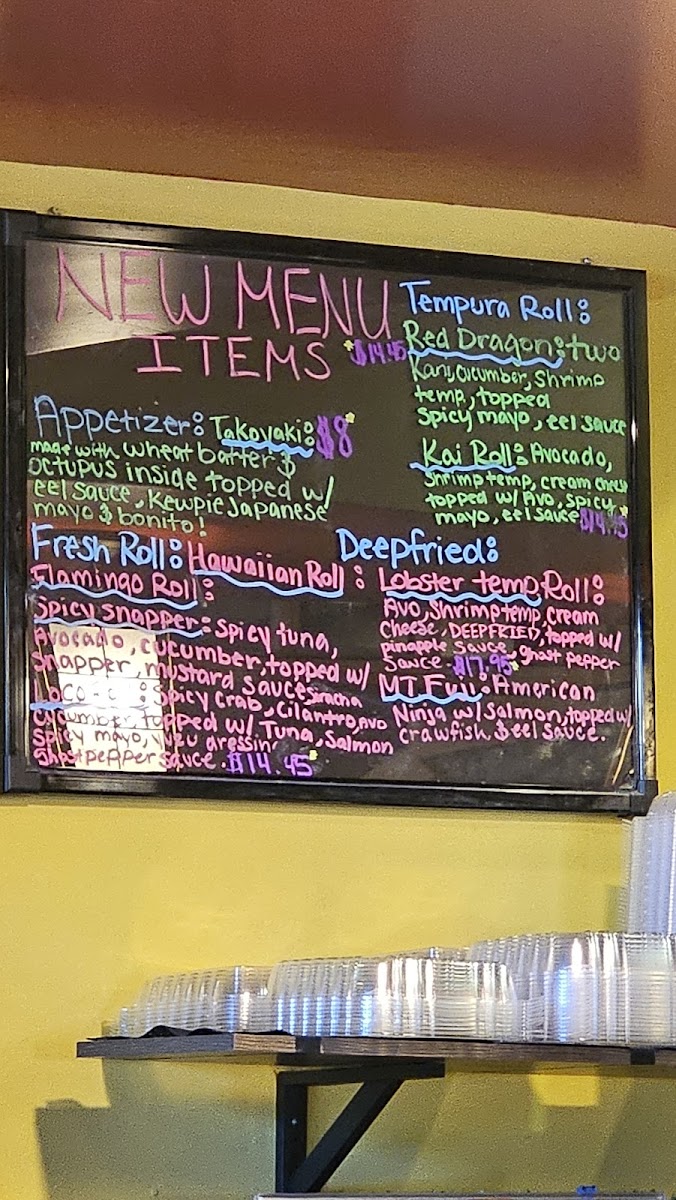 NEW MENU
ITEMS
Appetizer: Takoyaki: $8
made with wheat batter $
octupus inside topped w/
eel sauce, Kewpie Japanese
mayo $ bonito!
Tempura Roll:
$14.45 Red Dragon: two
Kani, cucumber, shrimp
temp, topped
spicy mayo, eel sauce
Kai Roll: Avocado,
shrimp temp, cream chese
topped w/ Avo, spicy
mayo, eel sauce $14.45
Fresh Roll: Hawaiian Roll:
Flamingo Roll:
Spicy snapper: spicy tuna,
Avocado, cucumber, topped w/
snapper, mustard sauce sriracha
Loco: spicy crab, cilantro, avo
cucumber, topped w/ Tuna, Salmon
spicy mayo, yuzu dressing
Ghost pepper sauce. $14.45
Deepfried:
Lobster temp Roll:
Avo, shrimp temp, cream
cheese, DEEPFRIED, topped w/
pineapple sauce, ghost pepper
sauce. $17.95
MT. Fuji: American
Ninja w/ Salmon, topped w/
crawfish $ eel sauce.